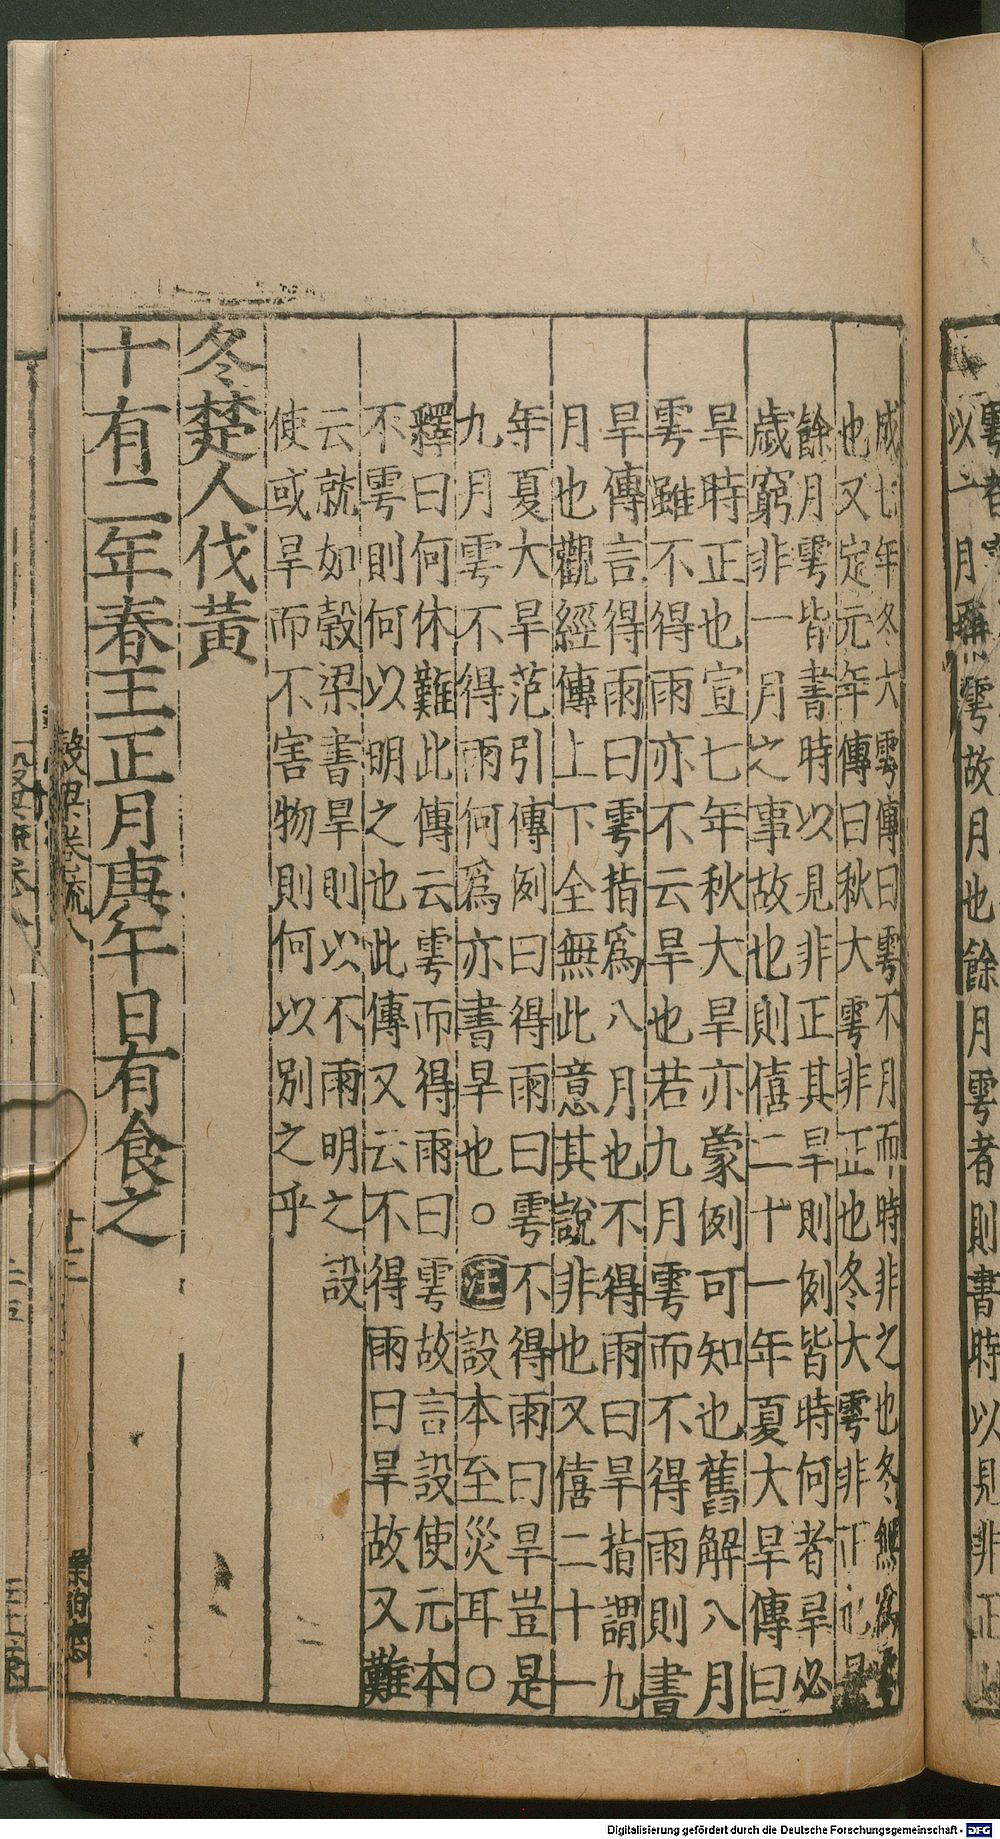 以一月 雩故月也餘月雩者則書時以見非正
成七年冬大雩傳曰雩不月而時非之也冬無為雩
也又定元年傳曰秋大雩非正也冬大雩非正也是
餘月雩皆書時以見非正其旱則例皆時何者旱必
歲窮非一月之事故也則僖二十一年夏大旱傳曰
旱時正也宣七年秋大旱亦蒙例可知也舊解八月
雩雖不得雨亦不云旱也若九月雩而不得雨則書
旱傳言得雨曰雩指為八月也不得雨曰旱指謂九
月也觀經傳上下全無此意其說非也又僖二十一
年夏大旱范引傳例曰得雨曰雩不得雨曰旱豈是
九月雩不得雨何爲亦書旱也○注設本至災耳○
釋曰何休難此傳云雩而得雨曰雩故言設使元本
不雩則何以明之也此傳又云不得雨曰旱故又難
云就如穀梁書旱則以不雨明之設
使或旱而不害物則何以別之乎
冬楚人伐黃
十有二年春王正月庚午日有食之
穀梁卷疏八
廿三
Digitalisierung gefördert durch die Deutsche Forschungsgemeinschaft - DFG